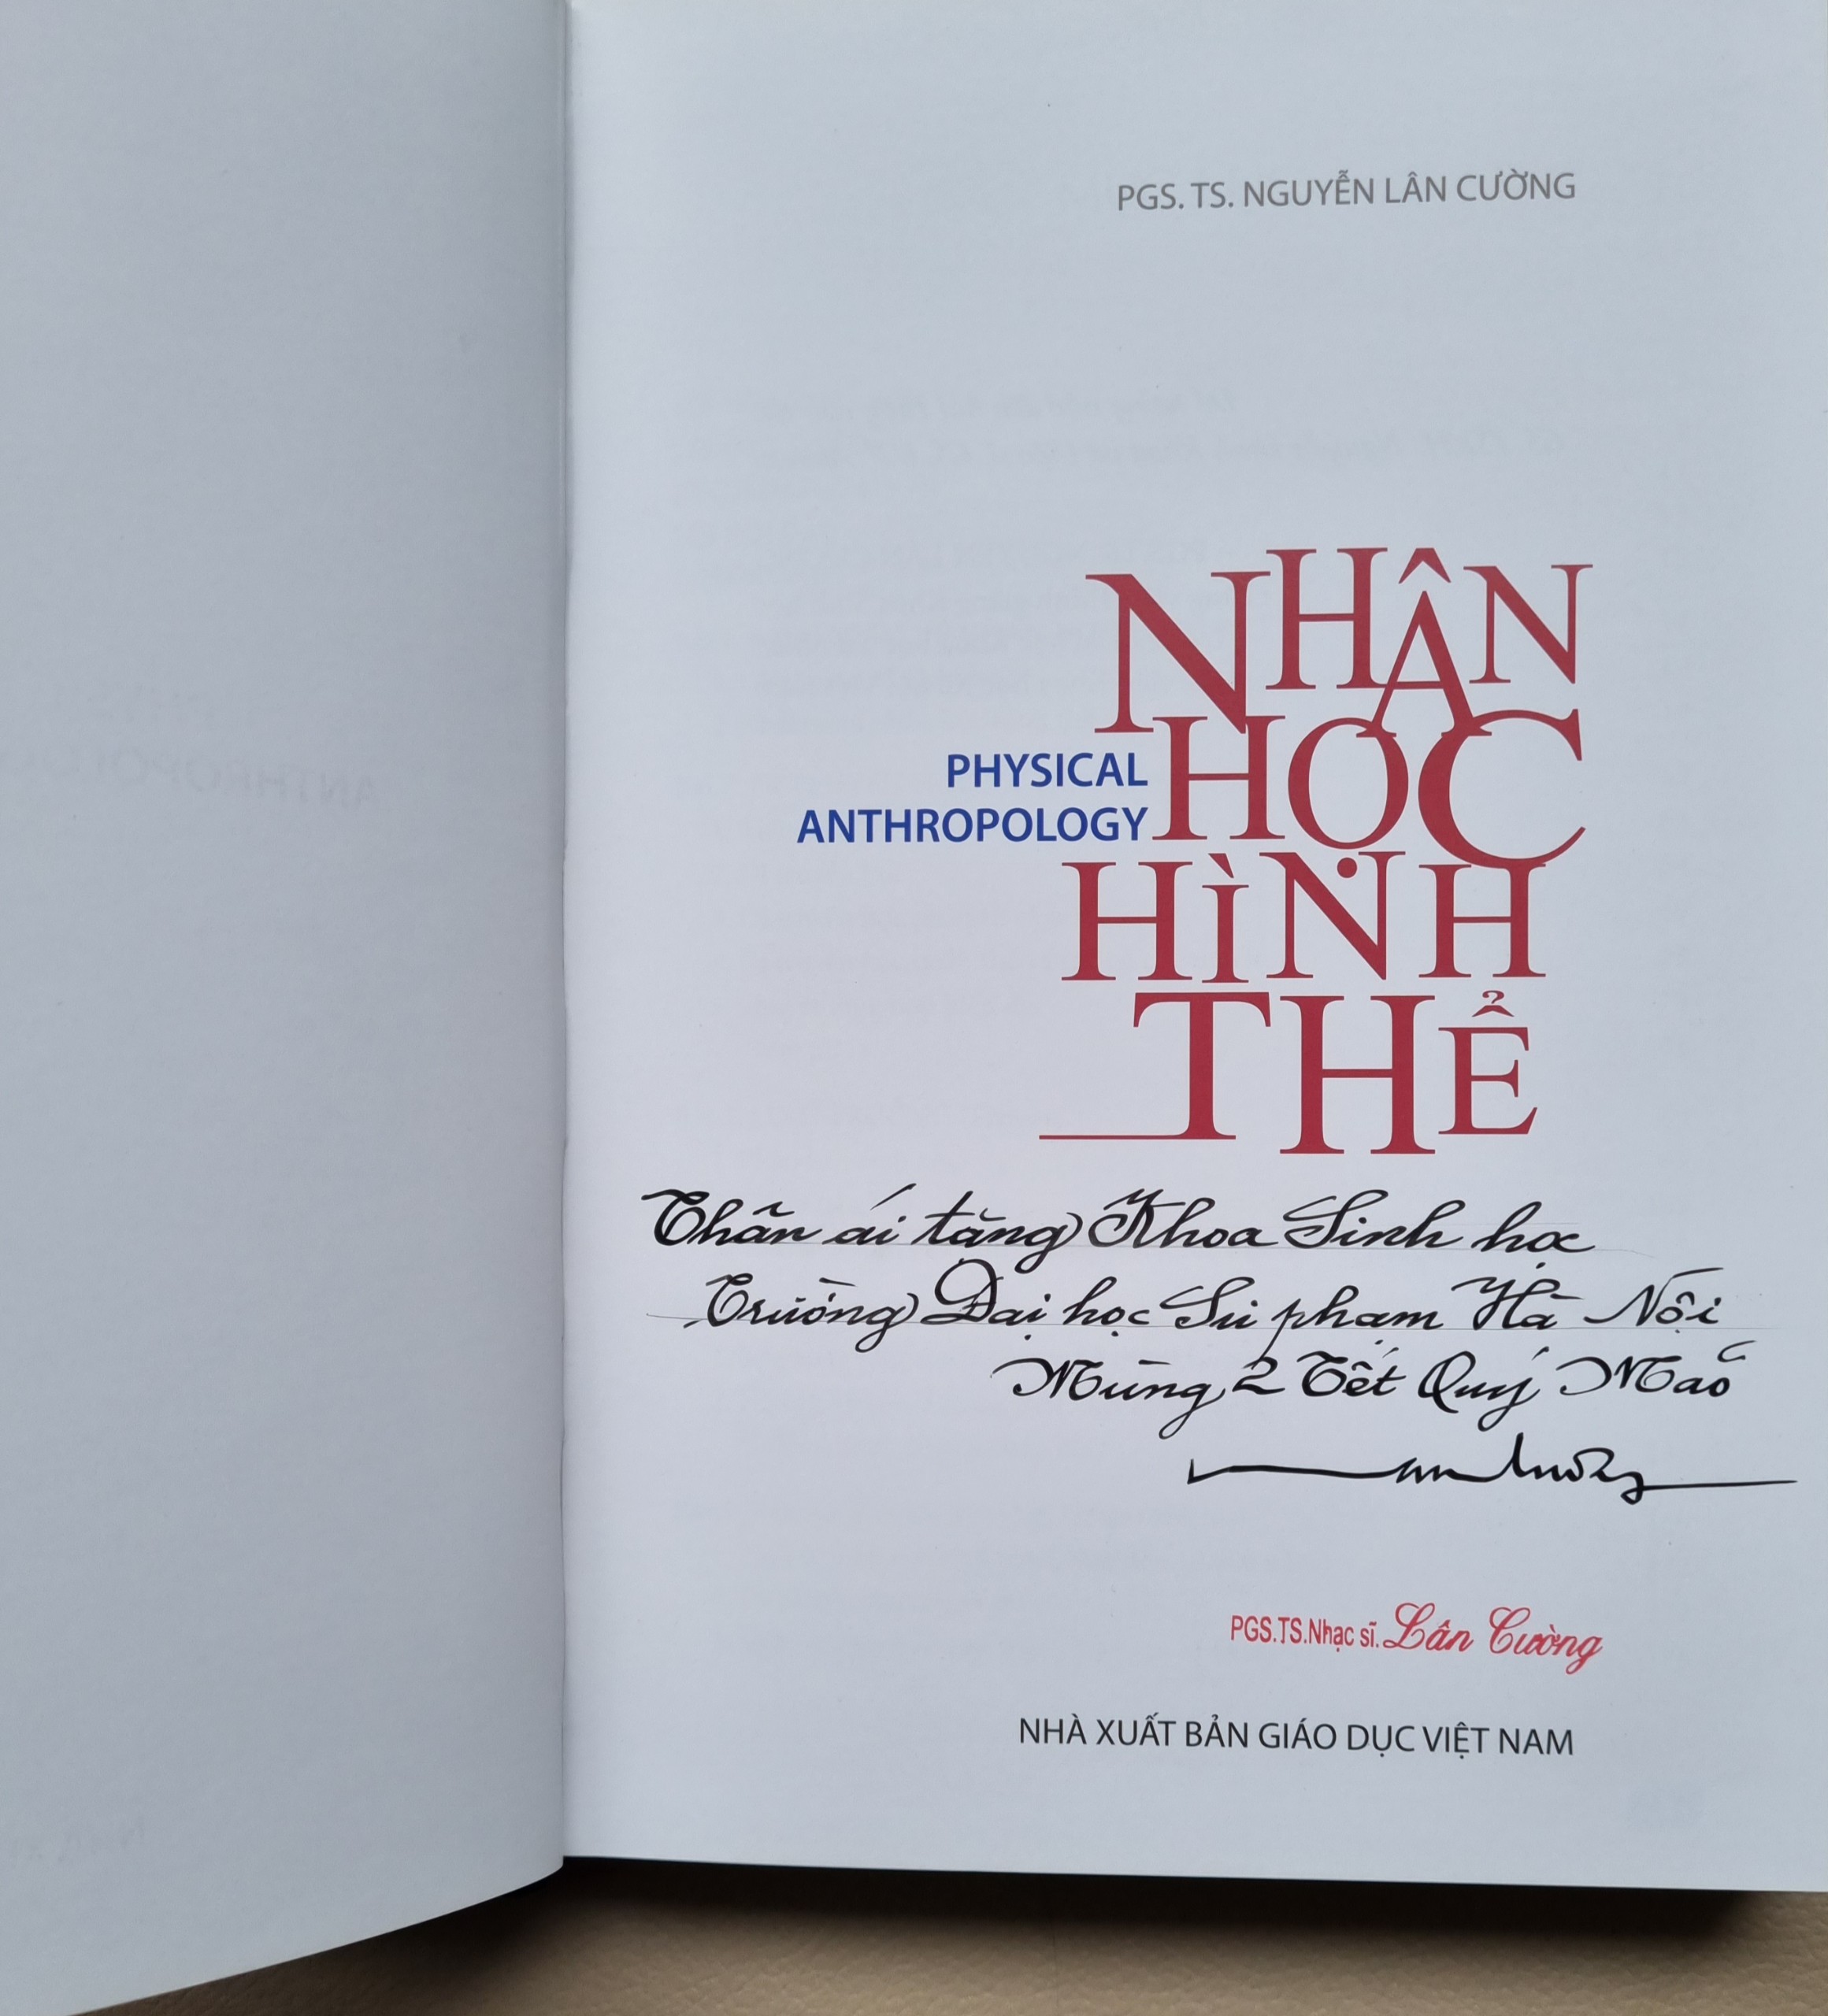 PGS. TS. NGUYỄN LÂN CƯỜNG
NHÂN
HỌC
PHYSICAL
ANTHROPOLOGY
HÌNH
THỂ
Thân ái tặng Khoa Sinh học
Trường Đại học Sư phạm Hà Nội
Mùng 2 Tết Quý Mão
PGS.TS.Nhạc sĩ. Lân Cường
NHÀ XUẤT BẢN GIÁO DỤC VIỆT NAM